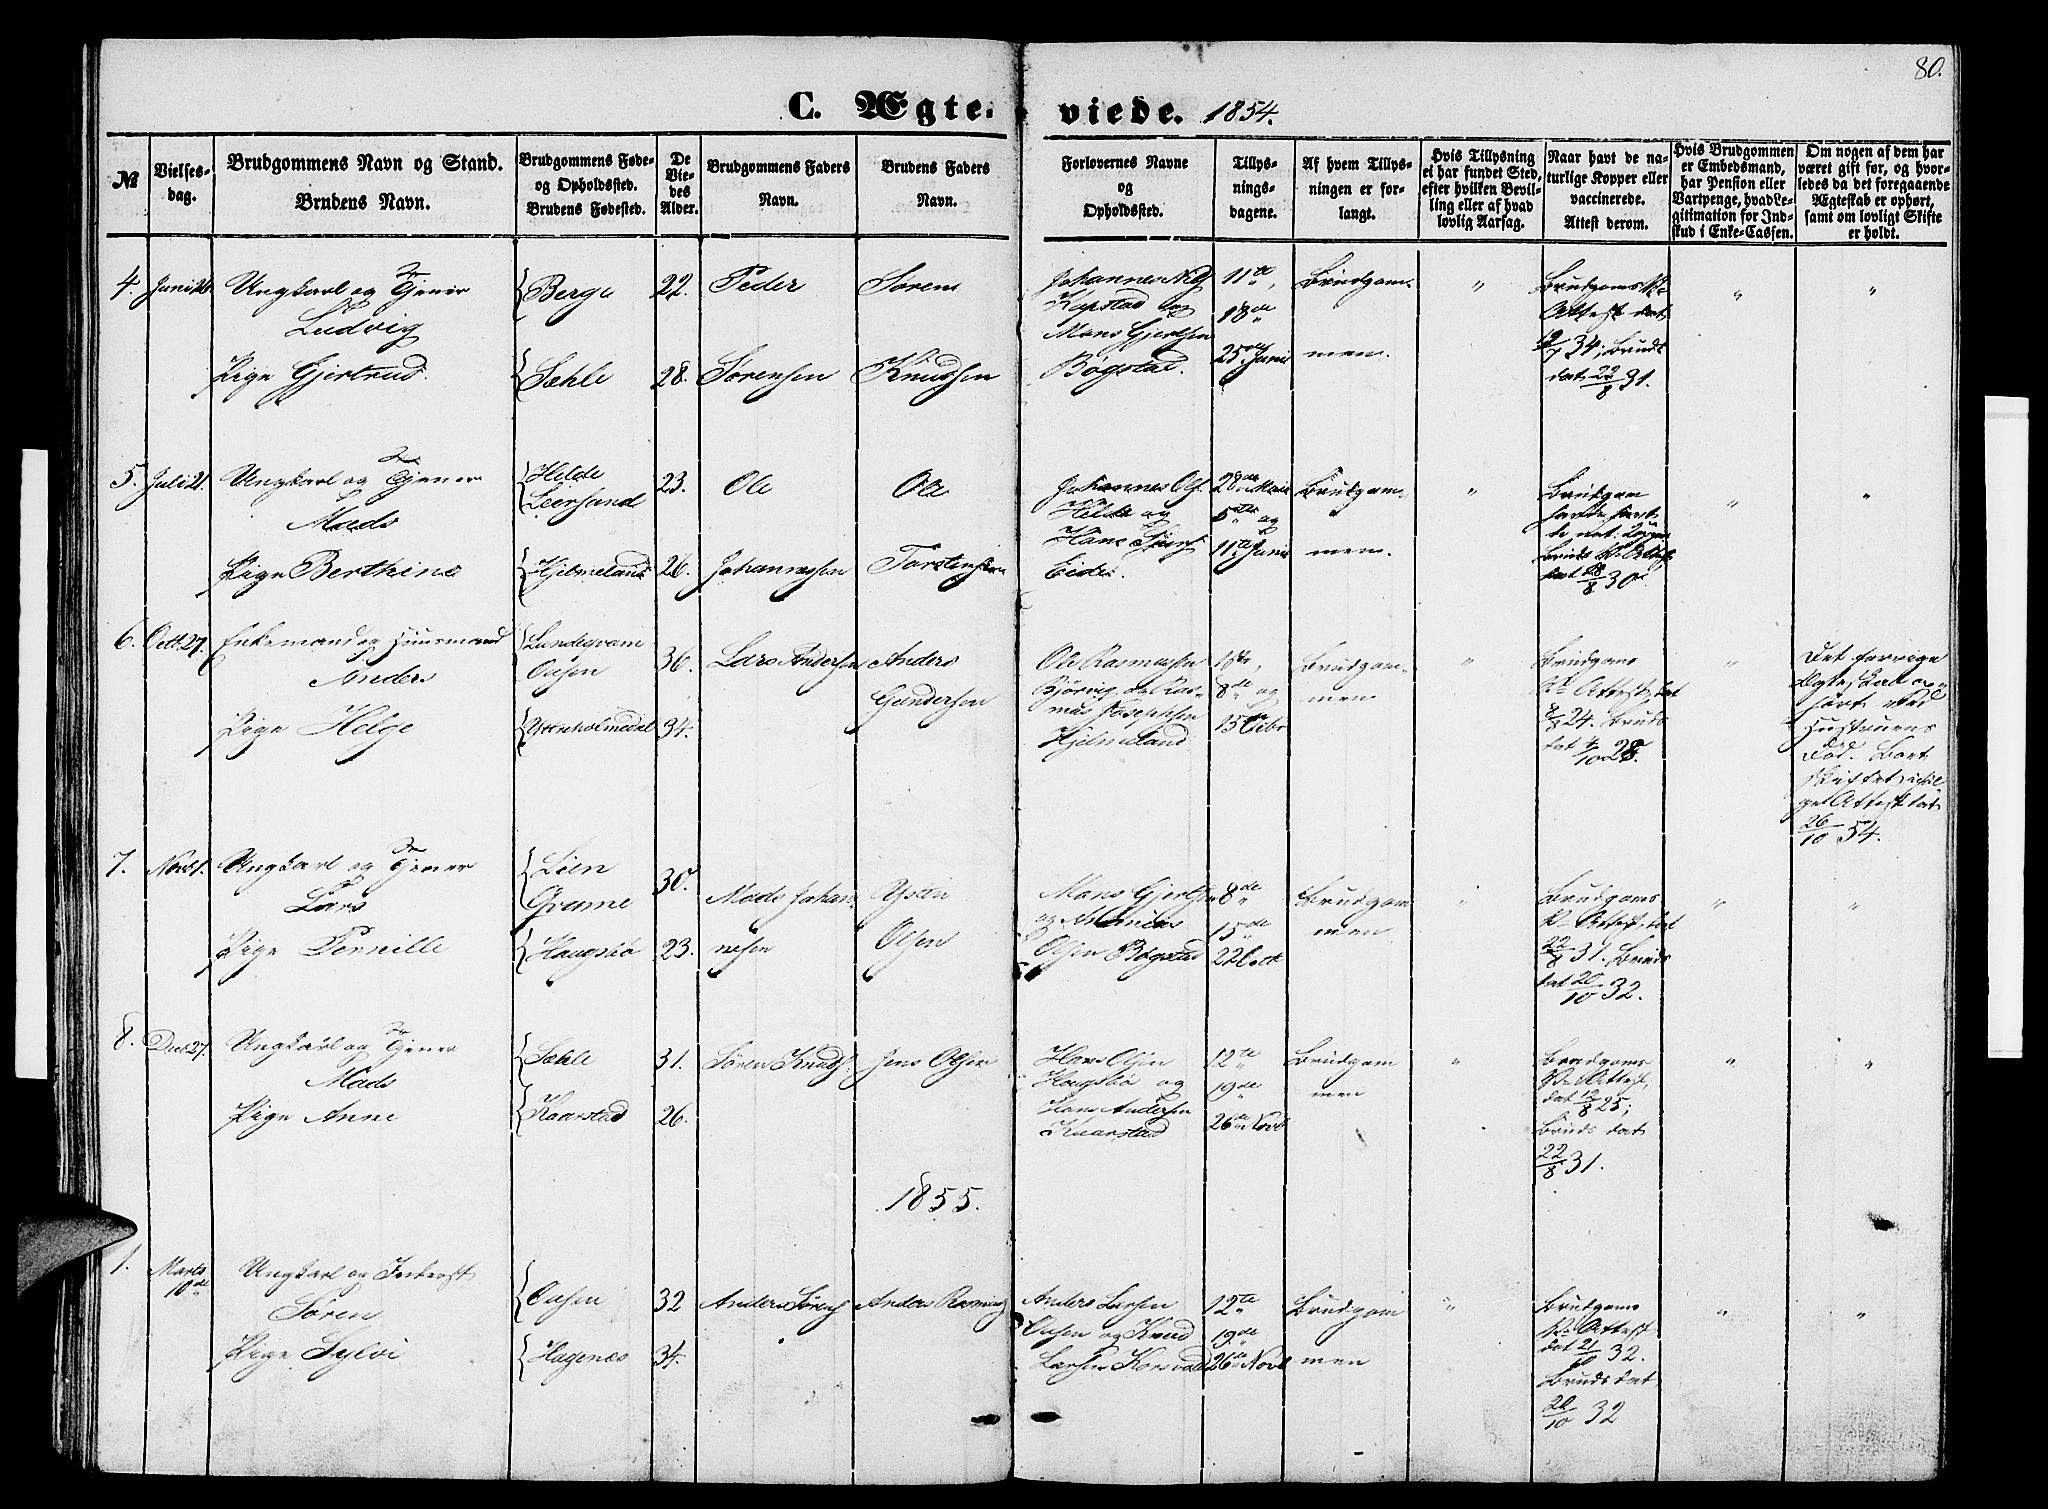 80.
C. Ægte- viede. 1854.
№
Vielses-
dag.
Brudgommens Navn og Stand.
Brudens Navn.
Brudgommens Føde-
og Opholdssted.
Brudens Fødested.
De
Vie-
des
Alder.
Brudgommens Faders
Navn.
Brudens Faders
Navn.
Forlovernes Navne
og
Opholdssted.
Tillys-
nings-
dagene.
Af hvem Tillys-
ningen er for-
langt.
Hvis Tillysning
ei har fundet Sted,
efter hvilken Bevil-
ling eller af hvad
lovlig Aarsag.
Naar havt de na-
turlige Kopper eller
vaccinerede.
Attest derom.
Hvis Brudgommen
er Embedsmand,
har Pension eller
Vartpenge, hvad Le-
gitimation for Ind-
skud i Enke-Cassen.
Om nogen af dem har
været gift før, og hvor-
ledes da det foregaaende
Ægteskab er ophørt,
samt om lovligt Skifte
er holdt.
4. Juni 26. Ungkarl og Tjener
Ludvig
Pige Gjertrud.
Berge
Sæhle
22.
28.
Peder
Sørensen
Sørens
Knudsen
Johannes Nils
Kapstad og
Mons Gjertsen
Bøgstad.
11te,
18de
25de Juni
Brudgom-
men.
"
Brudgoms V.
Attest dat
34, Bruds
dat 22/8 31.
"
"
5. Juli 21. Ungkarl og Tjener
Mads
Pige Berthine
Helde
Leersand
Hjelmeland
23.
26.
Ole
Johannessen
Ole
Torstensen
Johannes Ols.
Helde og
Hans
Eide.
28de Mai
5te og
11te Juni
Brudgom-
men.
"
Brudgom
havde havt
de nat. Kopper
Bruds V. Attest
dat 28/8 30
"
"
6. Octb. 27. Enkemand og Huusmand
Anders
Pige Helge
Lundegram
Oasen
Yttreholmedal
36.
34.
Lars Andersen
Anders
Gundersen
Ole Rasmussen
Bjørvig og Ras-
mus Josephsen
Hjelmeland
1ste,
8de og
15de Octbr
Brudgom-
men
"
Brudgoms
V. Attest dat
24. Bruds
dat 4/10 28.
"
Det forrige
Ægteskab op-
hørt ved
Hustruens
Død. Bort
skiftet iføl-
ge Attest dat
26/10 54.
7. Novb 1. Ungkarl og Tjener
Lars
Pige Pernille
Lien
Grame
Haugsbø
30.
23.
Mads Johan-
nesen
Østen
Olsen
Mons Gjertsen
og
Olsen Bøgstad
8de
15de
22 Octb
Brudgom
men
"
Brudgoms
V. Attest dat
22/8 31. Bruds
dat 20/10 32.
"
"
8. Decb 27. Ungkarl og Tjener
Mads
Pige Anne
Sæhle
Kaarstad
31.
26.
Søren Knuds.
Jens Olsen
Hans Olsen
Haugsbø og
Hans Andersen
Kaarstad
12te
19de
26de Novb
Brudgom
men
"
Brudgoms
V. Attest,
dat 12/8 25;
Bruds dat
22/8 31.
"
"
1855.
1. Marts
10de
Ungkarl og Inderst
Søren
Pige Sylvi
Oasen
Hagenæs
32
34.
Anders Sørens
Anders Rasmus
Anders Larsen
Oasen og Knud
Larsen Korsvold
12te
19de
26de Novb
Brudgom
men
"
Brudgoms
V. Attest
dat 21/10 32.
Bruds dat
20/10 32
"
"